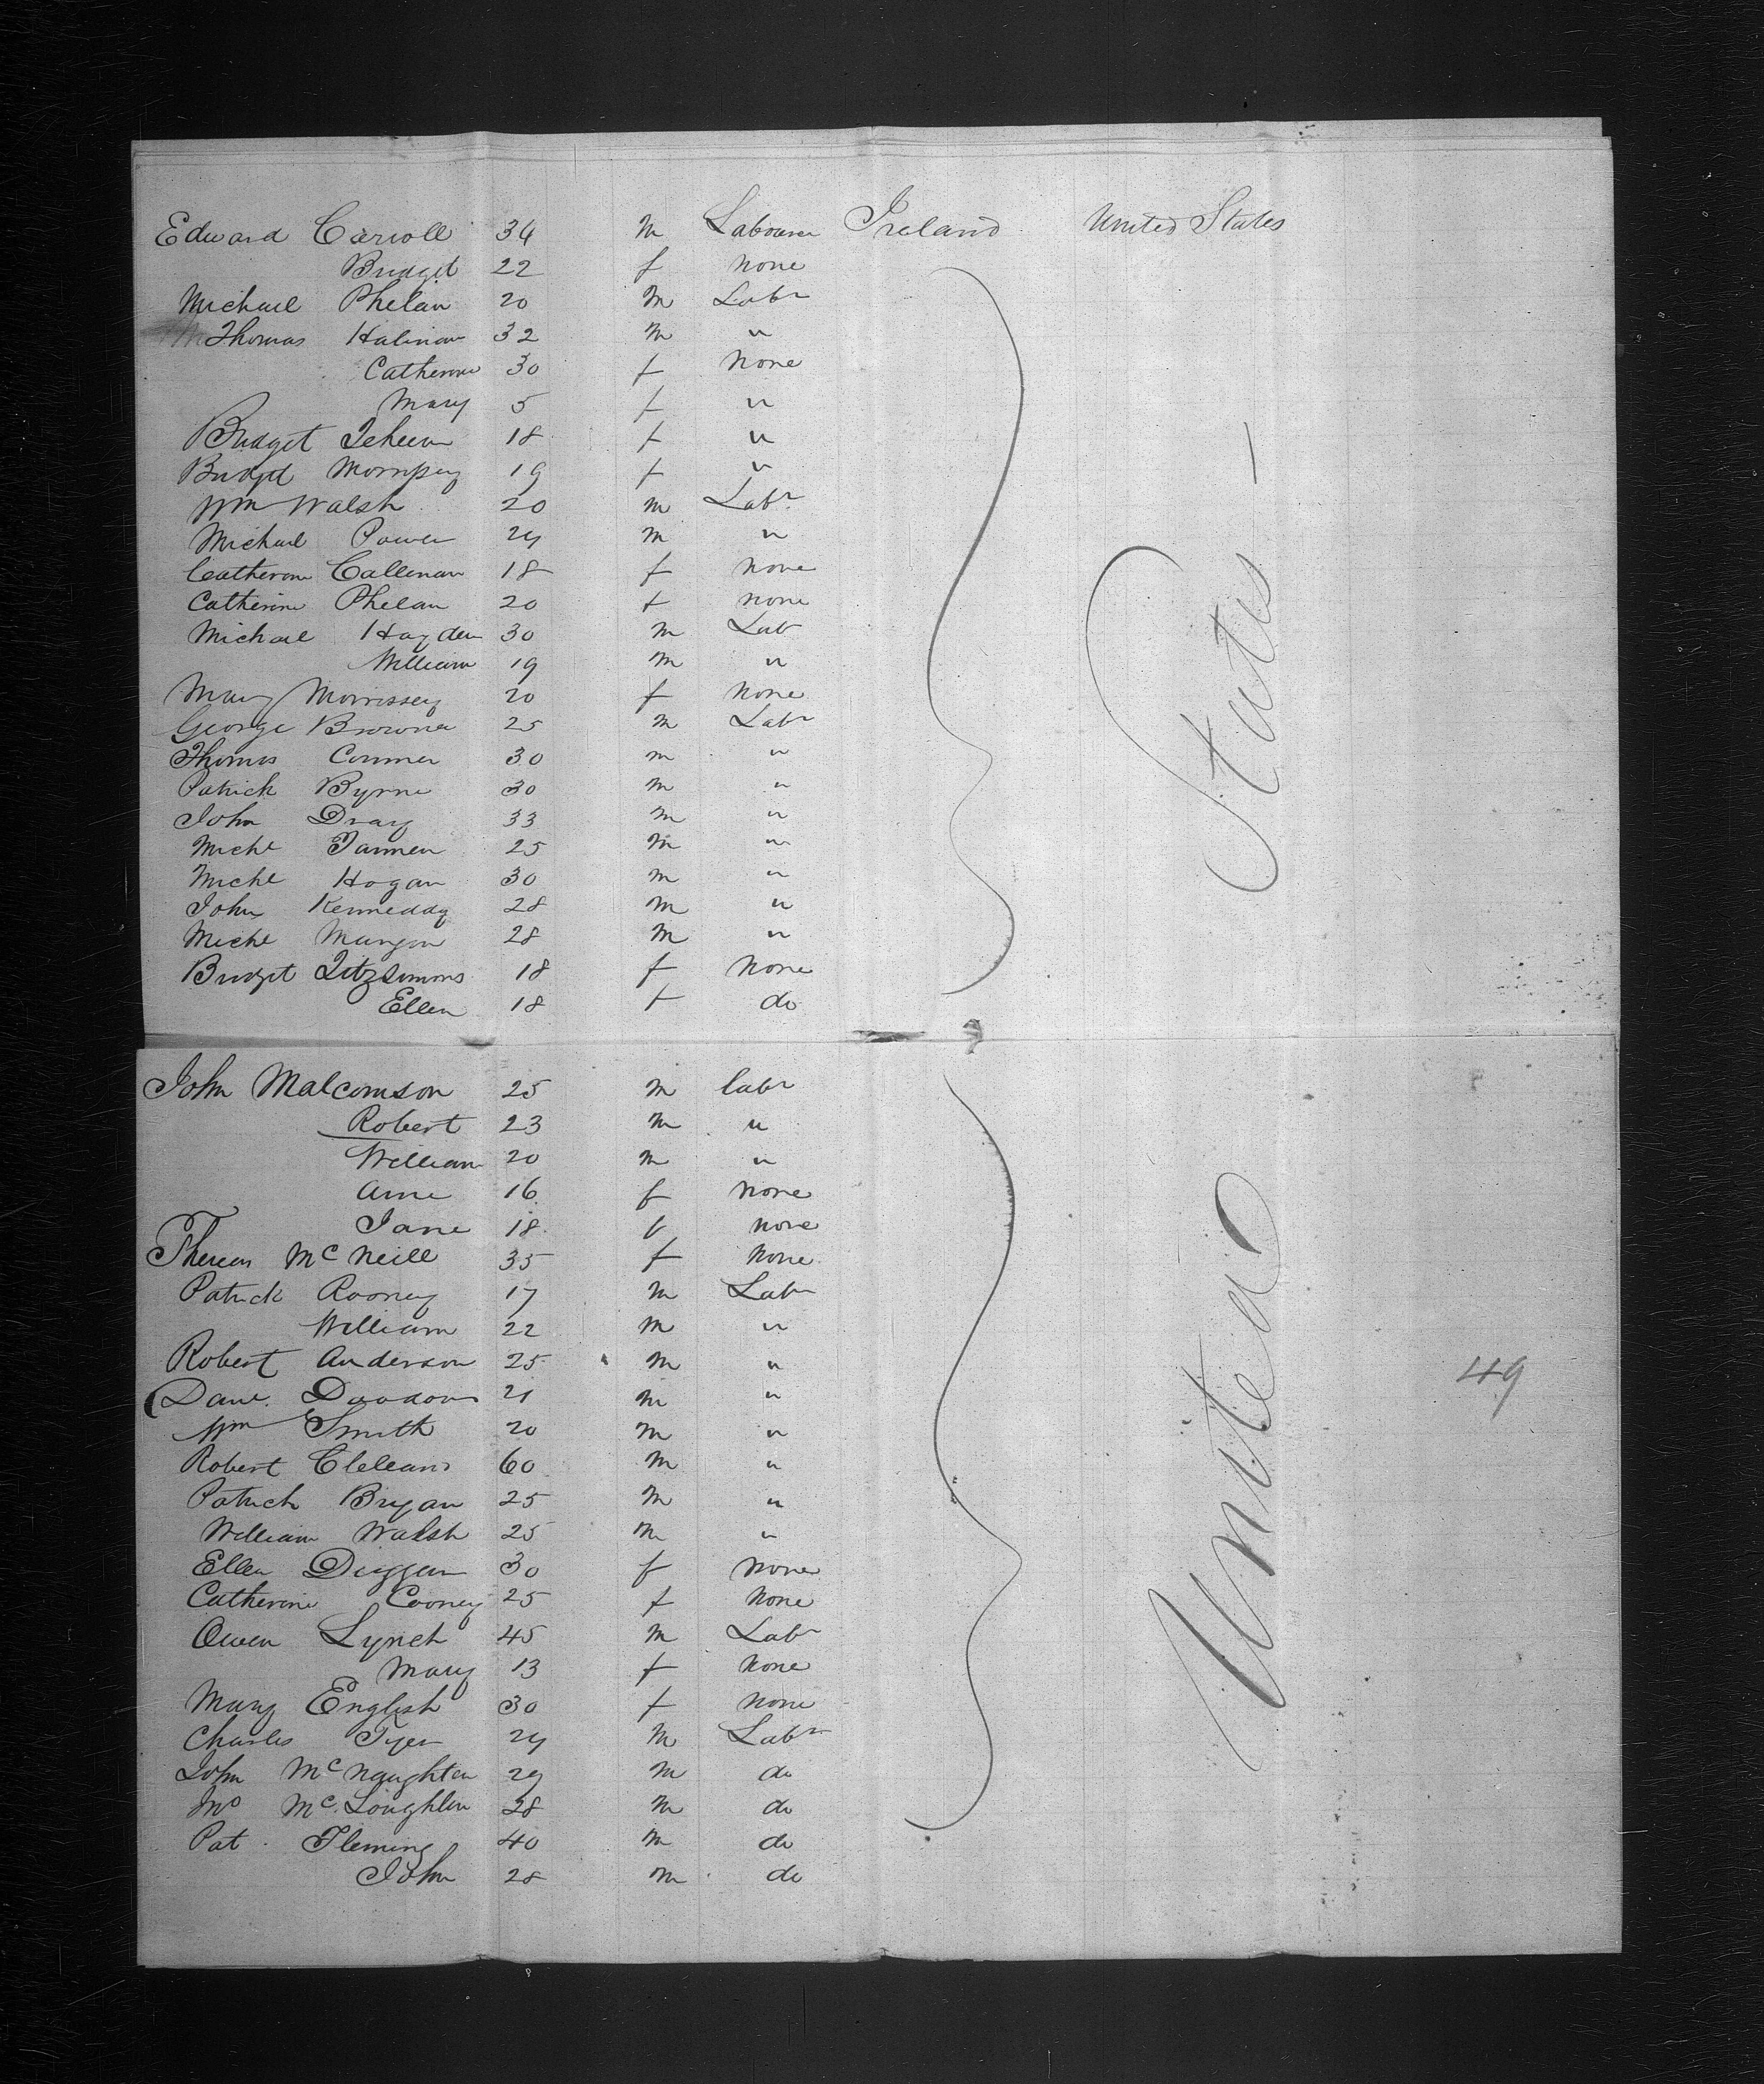 Edward Carroll 34 m Labourer Ireland United States
Bridget 22 f none
Michael Phelan 20 m Labr
Thomas Halinan 32 m "
Catherine 30 f none
Mary 5 f "
Bridget 18 f "
Bridget 19 f "
Wm Walsh 20 m Labr
Michael Power 24 m "
Catherine Callenan 18 f none
Catherine Phelan 20 f none
Michael Hayden 30 m Lab
William 19 m "
Mary Morrissey 20 f none
George Browne 25 m Labr
Thomas Connor 30 m "
Patrick Byrne 30 m "
John Dray 33 m "
Michl 25 m "
Michl Hogan 30 m "
John Kenneddy 28 m "
Michl Mangan 28 m "
Bridget Fitzsimmons 18 f none
Ellen 18 f do
John Malcomson 25 m labr
Robert 23 m "
William 20 m "
Anne 16 f none
Jane 18 f none
McNeill 35 f none
Patrick Rooney 17 m Labr
William 22 m "
Robert Anderson 25 m "
49
21 m "
Wm Smith 20 m "
Robert Cleland 60 m "
Patrick Bryan 25 m "
William Walsh 25 m "
Ellen Duggan 30 f none
Catherine Cooney 25 f none
Owen Lynch 45 m Labr
Mary 13 f none
Mary English 30 f none
Charles 24 m Labr
John McNaughten 29 m do
Jno McLoughlin 28 m do
Pat Fleming 40 m do
John 28 m do
United States —